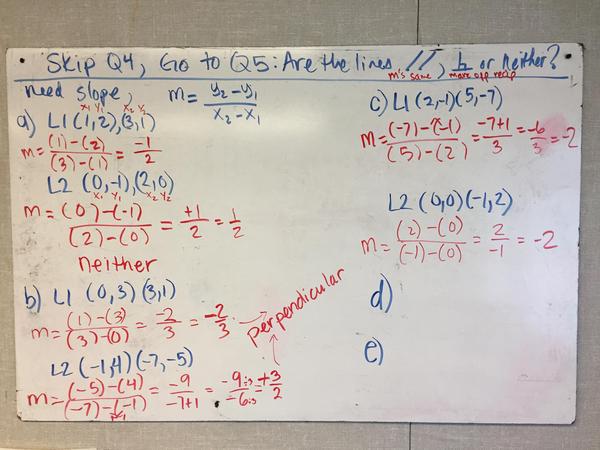 Skip Q4, Go to Q5: Are the lines //, ⊥ or Neither?
m's same, m are opp recip
need slope, m = y₂-y₁ / x₂-x₁
a) L1 (1,2), (3,1)
x₁ y₁ x₂ y₂
m = (1)-(2) / (3)-(1) = -1/2
L2 (0,-1), (2,0)
x₁ y₁ x₂ y₂
m = (0)-(-1) / (2)-(0) = +1/2 = 1/2
neither
b) L1 (0,3) (3,1)
m = (1)-(3) / (3)-(0) = -2/3 = -2/3
perpendicular
L2 (-1,4) (-7,-5)
m = (-5)-(4) / (-7)-(-1) = -9 / -7+1 = -9÷3 / -6÷3 = +3/2
c) L1 (2,-1) (5,-7)
m = (-7)-(-1) / (5)-(2) = -7+1 / 3 = -6/3 = -2
L2 (0,0) (-1,2)
m = (2)-(0) / (-1)-(0) = 2/-1 = -2
d)
e)